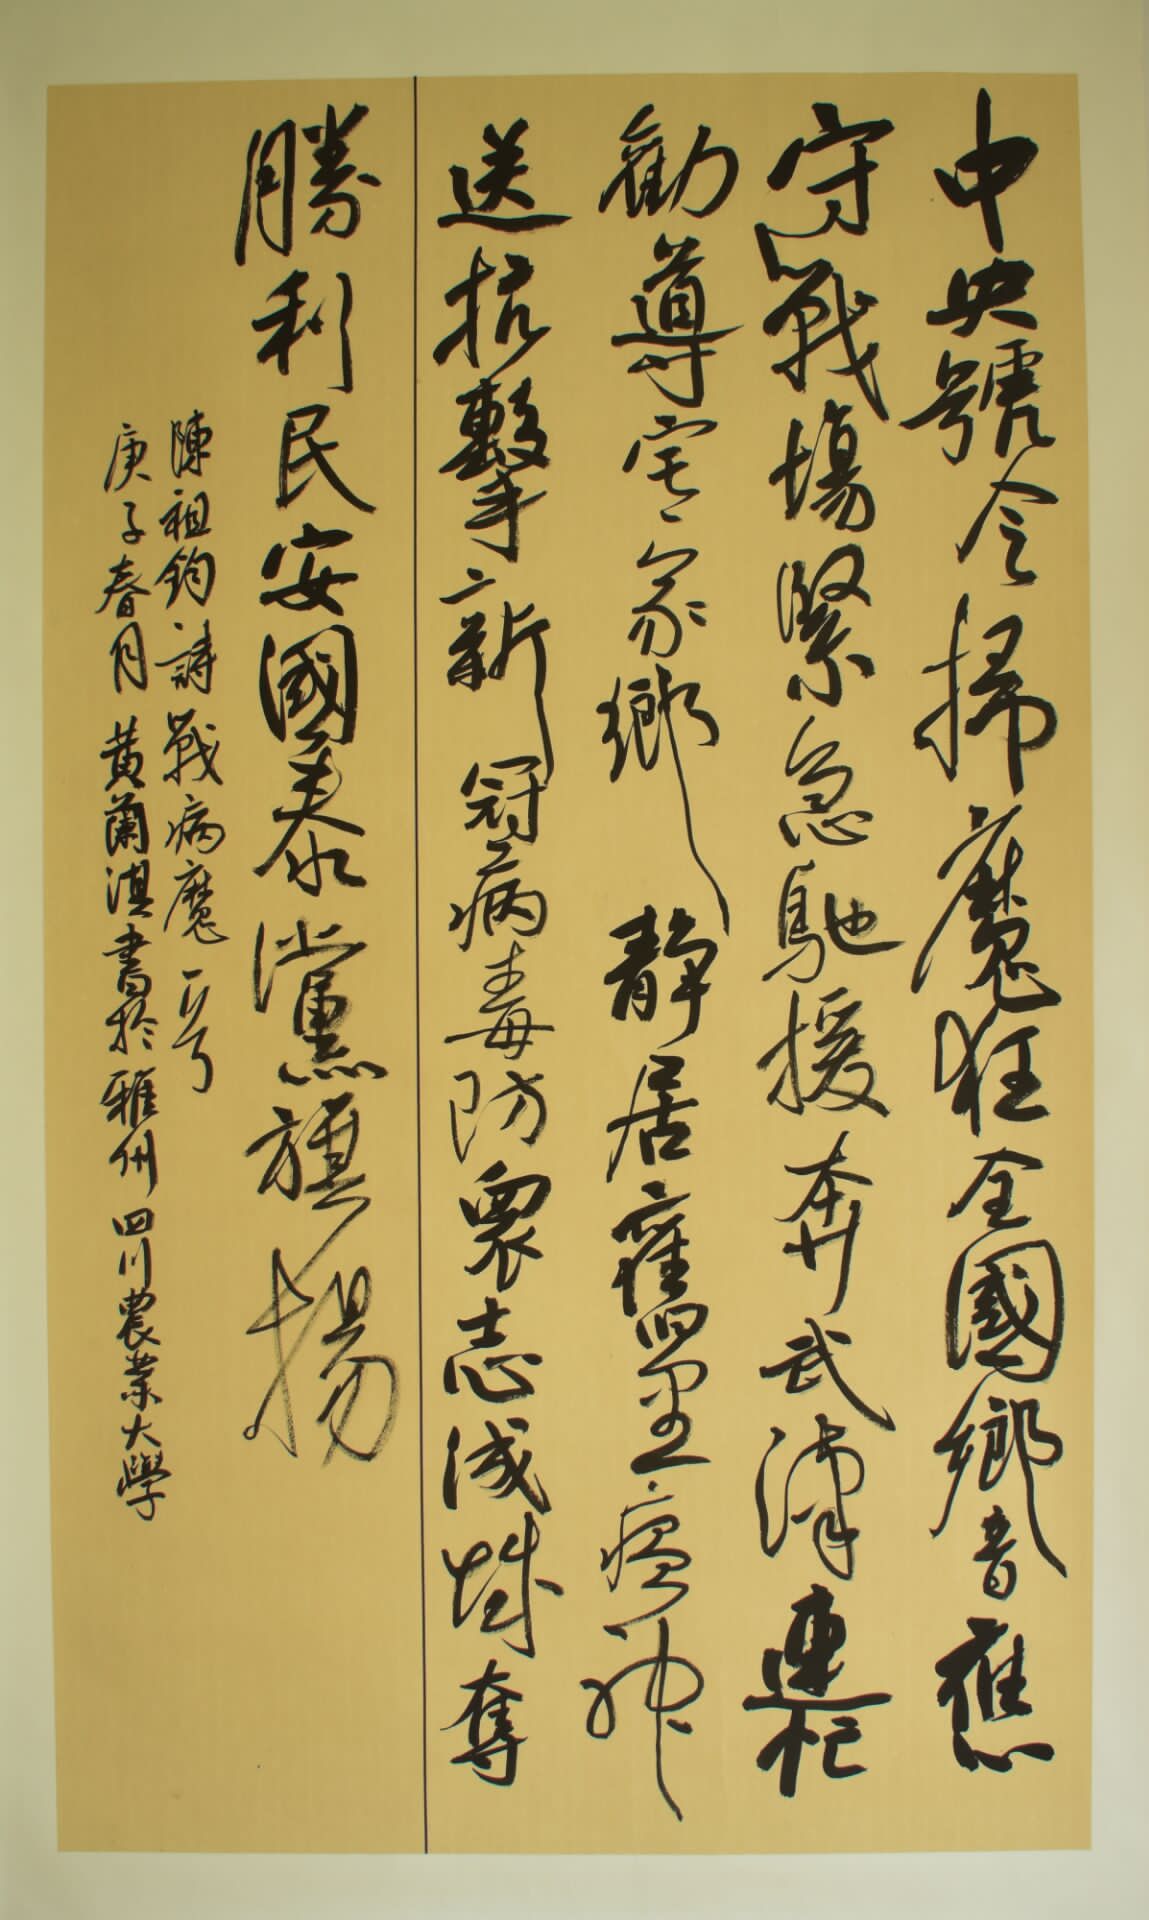 中央號令掃魔狂全國鄉音應
守戰場緊急馳援奔武漢連忙
勸導宅家鄉靜居舊望瘟神
送抗擊新冠病毒防眾志成城奪
勝利民安國泰黨旗揚
陳祖鈞詩戰病魔一首
庚子春月黃蘭淇書於雅州四川農業大學